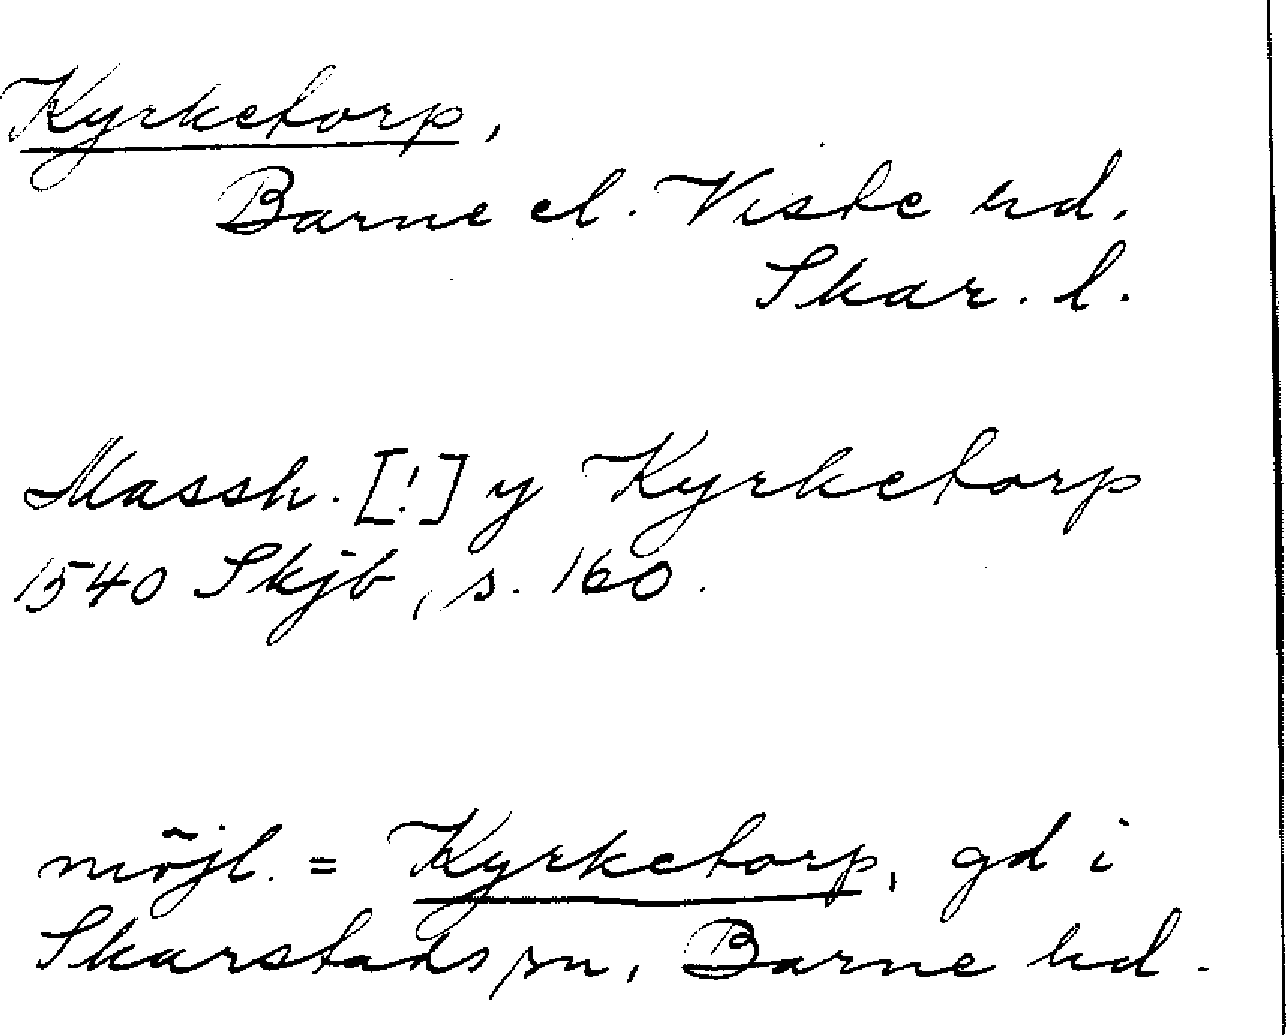 Kyrketorp,
Barne el. Viste hd.
Skar. l.
Massh. [!] y Kyrketorp
1540 Skjb, s. 160.
möjl. = Kyrketorp, gd i
Skarstads sn, Barne hd.